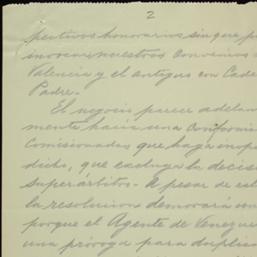 2
pectivos honorarios sin que p
invocar nuestros convenios
Valencia y el antiguo con Cade
Padre.
El negocio parece adelan
mente hacia una conformi
Comisionados que haga inope
dicho, que excluya la decis
Superárbitro. A pesar de es
la resolucion demorará
porque el Agente de Venezue
una próroga para duplic